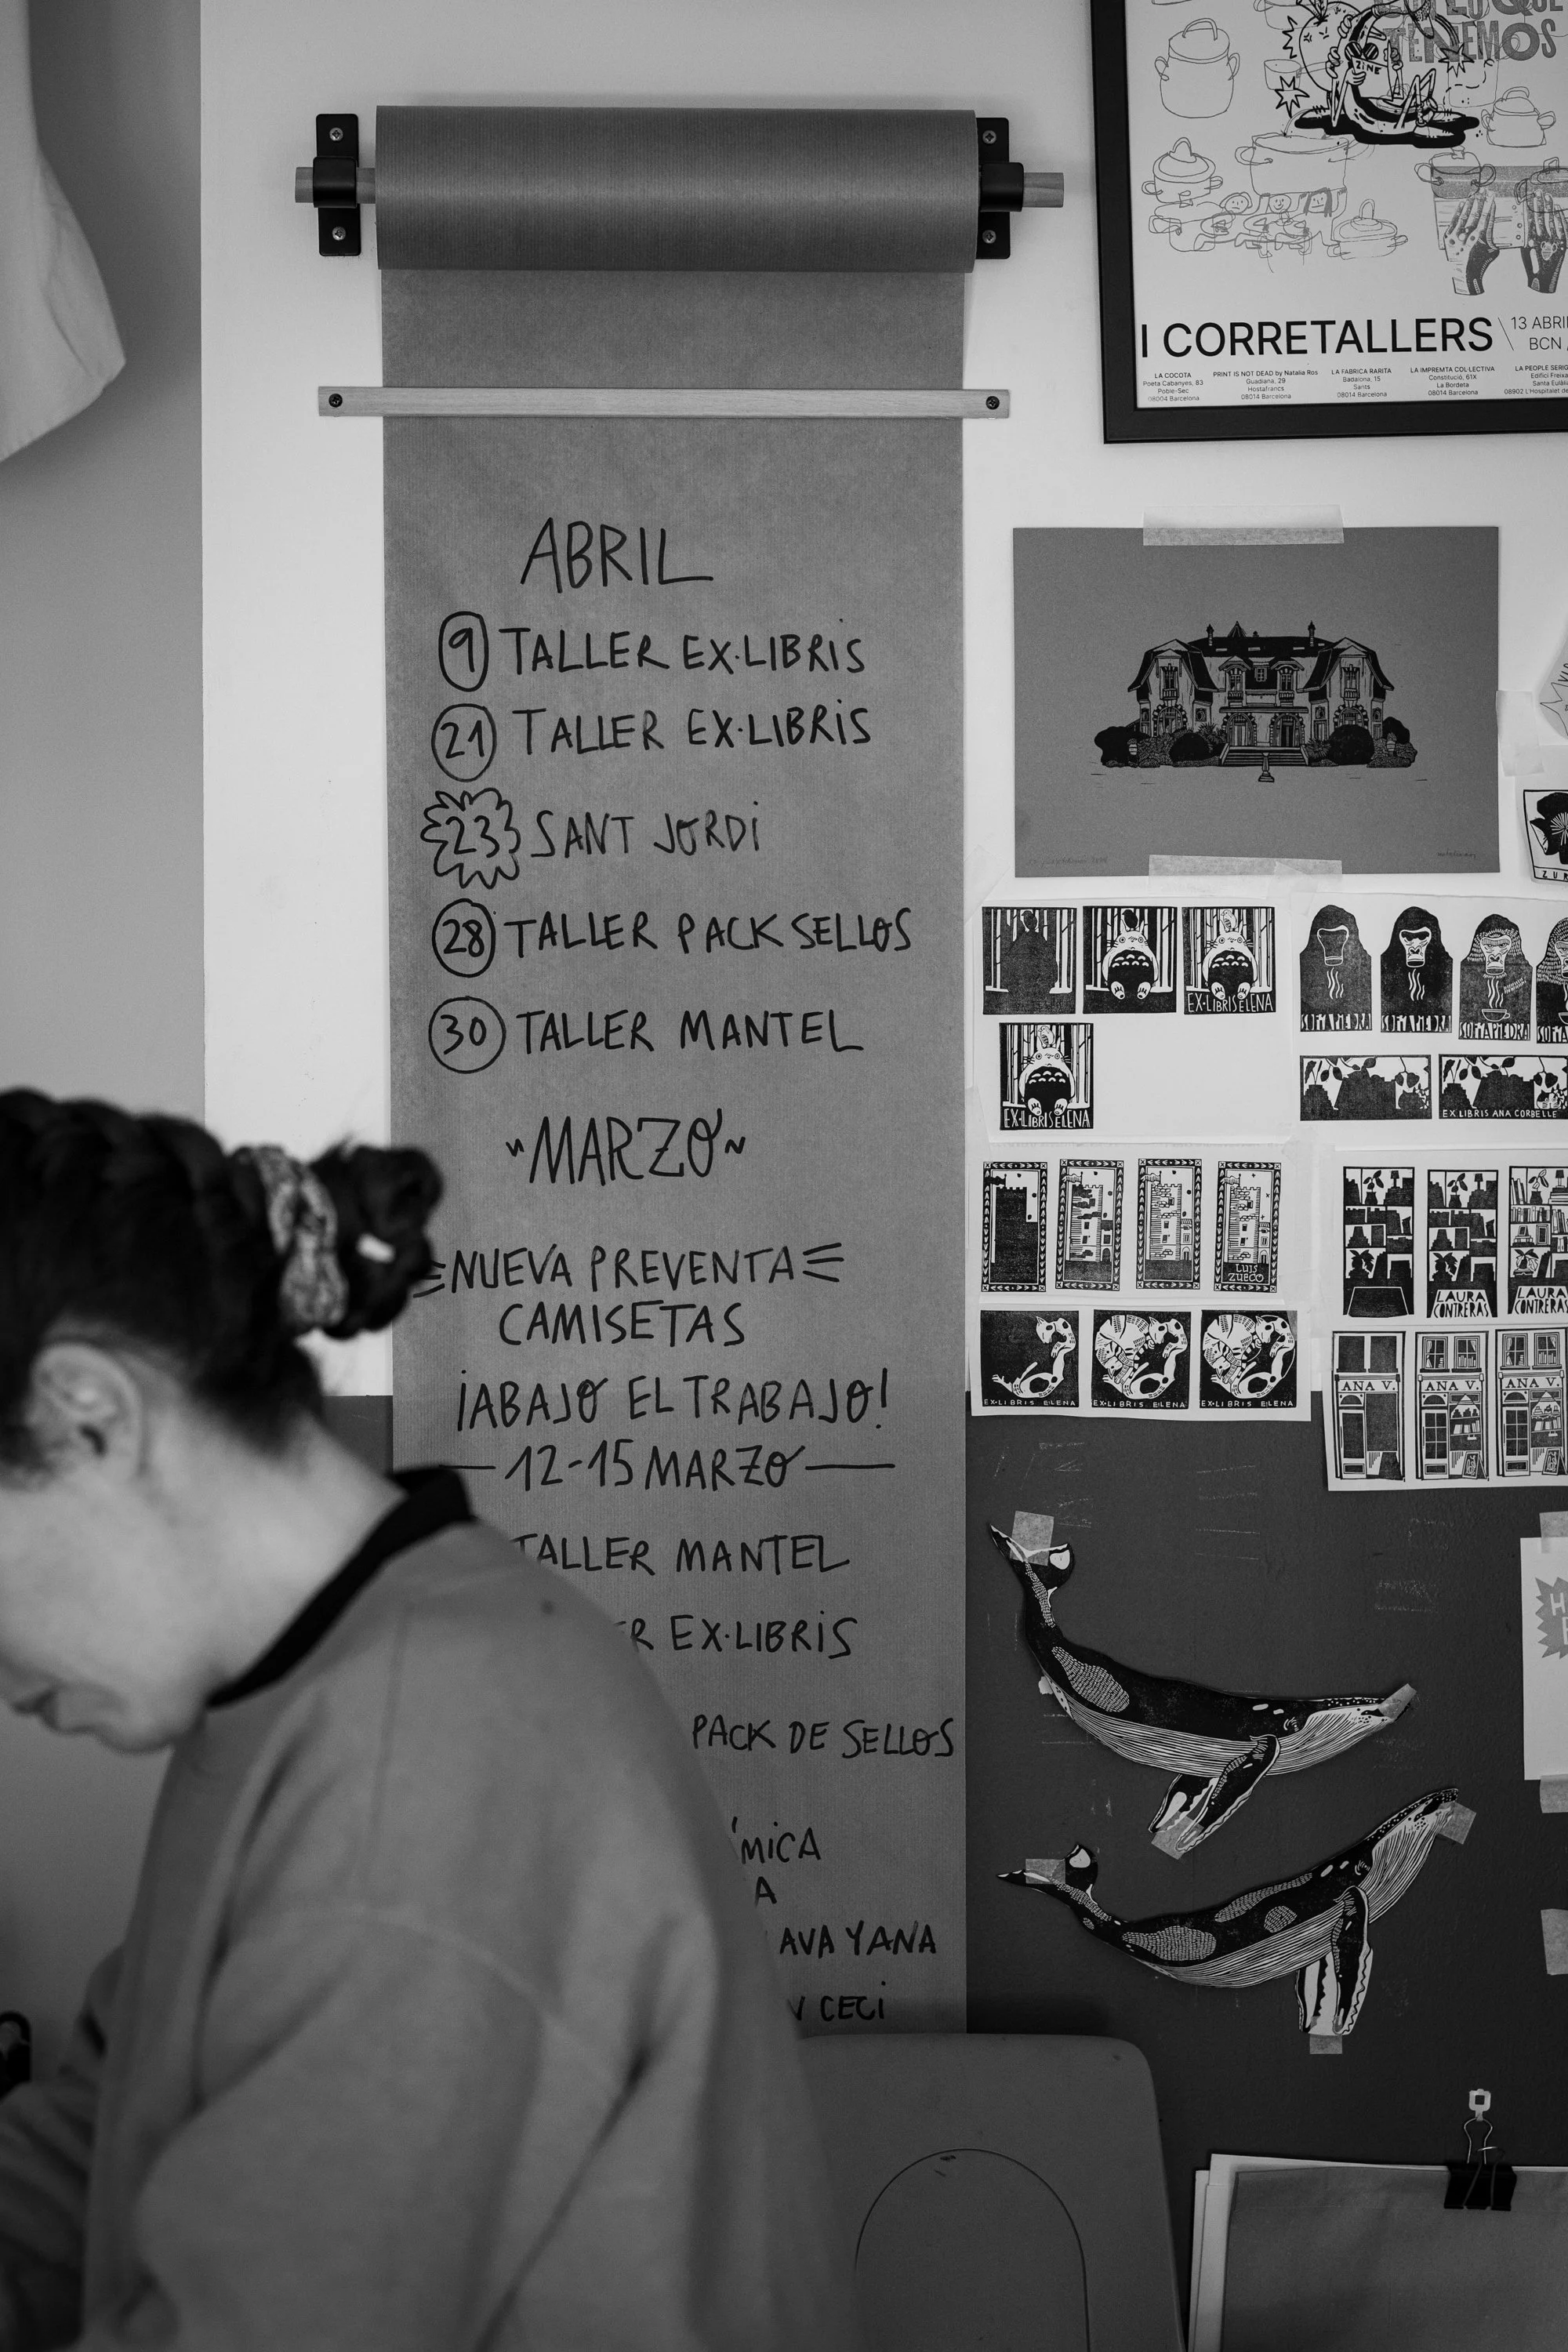 ABRIL
9 TALLER EX·LIBRIS
21 TALLER EX·LIBRIS
23 SANT JORDI
28 TALLER PACK SELLOS
30 TALLER MANTEL
~MARZO~
NUEVA PREVENTA
CAMISETAS
¡ABAJO EL TRABAJO!
—12-15 MARZO—
TALLER MANTEL
ER EX·LIBRIS
PACK DE SELLOS
ÍMICA
A
AVA YANA
N CECI
TENEMOS
ZINE
I CORRETALLERS \ 13 ABRI
BCN
LA COCOTA
Poeta Cabanyes, 83
Poble-Sec
08004 Barcelona
PRINT IS NOT DEAD by Natalia Ros
Guadiana, 29
Hostafrancs
08014 Barcelona
LA FABRICA RARITA
Badalona, 15
Sants
08014 Barcelona
LA IMPREMTA COL·LECTIVA
Constitució, 61X
La Bordeta
08014 Barcelona
LA PEOPLE SERIG
Edifici Freixa
Santa Eulàlia
08902 L'Hospitalet de
ZUR
EX·LIBRIS ELENA
EX·LIBRIS ELENA
SOPA PIEDRA
SOPA PIEDRA
SOPA PIEDRA
SOPA
EX LIBRIS ANA CORBELLE
LUIS
ZUECO
LAURA
CONTRERAS
LAURA
CONTRERAS
EX·LIBRIS ELENA
EX·LIBRIS ELENA
EX·LIBRIS ELENA
ANA V.
ANA V.
ANA V.